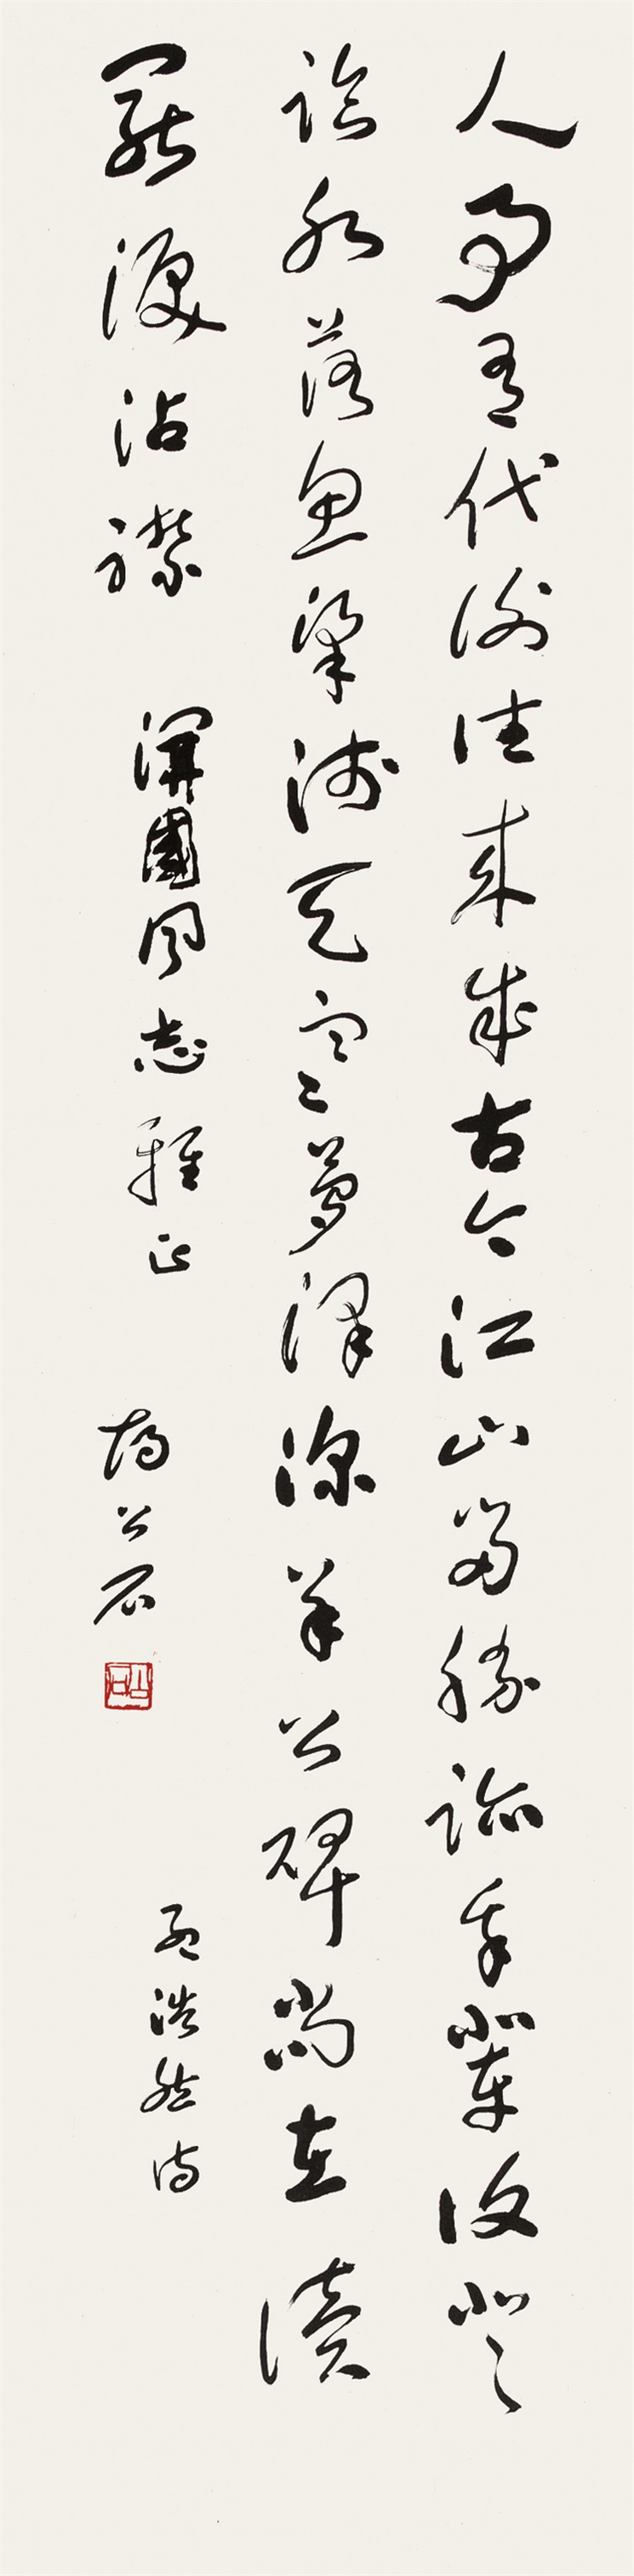 人事有代謝往來成古今江山留勝跡我輩復登
臨水落魚梁淺天寒夢澤深羊公碑尚在讀
罷淚沾襟
開國同志雅正
胡公石
公石
孟浩然詩